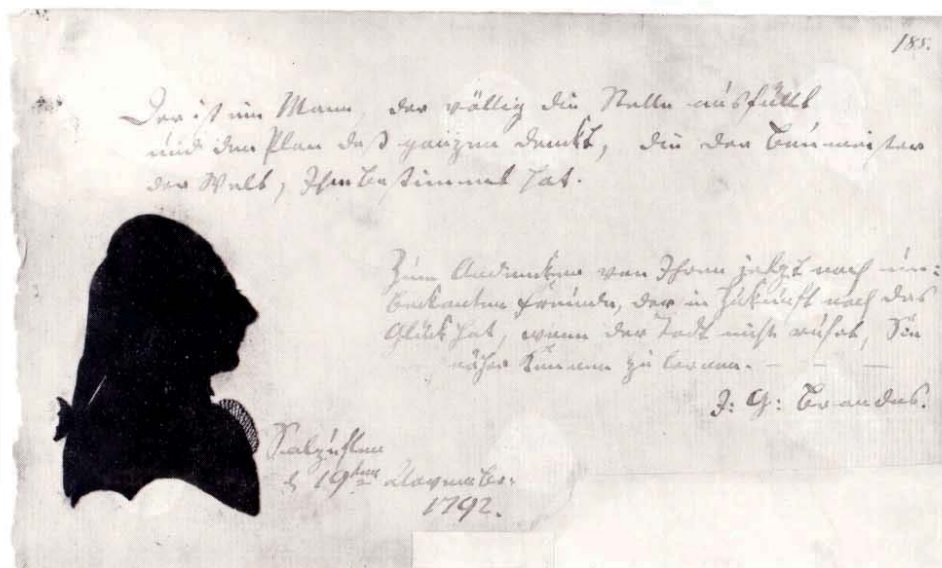 185.
Der ist ein Mann, der völlig die Stelle ausfüllt
und den Plan deß ganzen denckt, die der Baumeister
der Welt, Ihm bestimmet hat.
Zum Andencken von Ihren jetzt noch un=
bekanten Freunde, der in Zukunft noch das
Glück hat, wenn der Todt nicht ruft, Sie
näher kennen zu lernen. – – –
J: G: Brandes.
Salzuflen
d 19ten November.
1792.